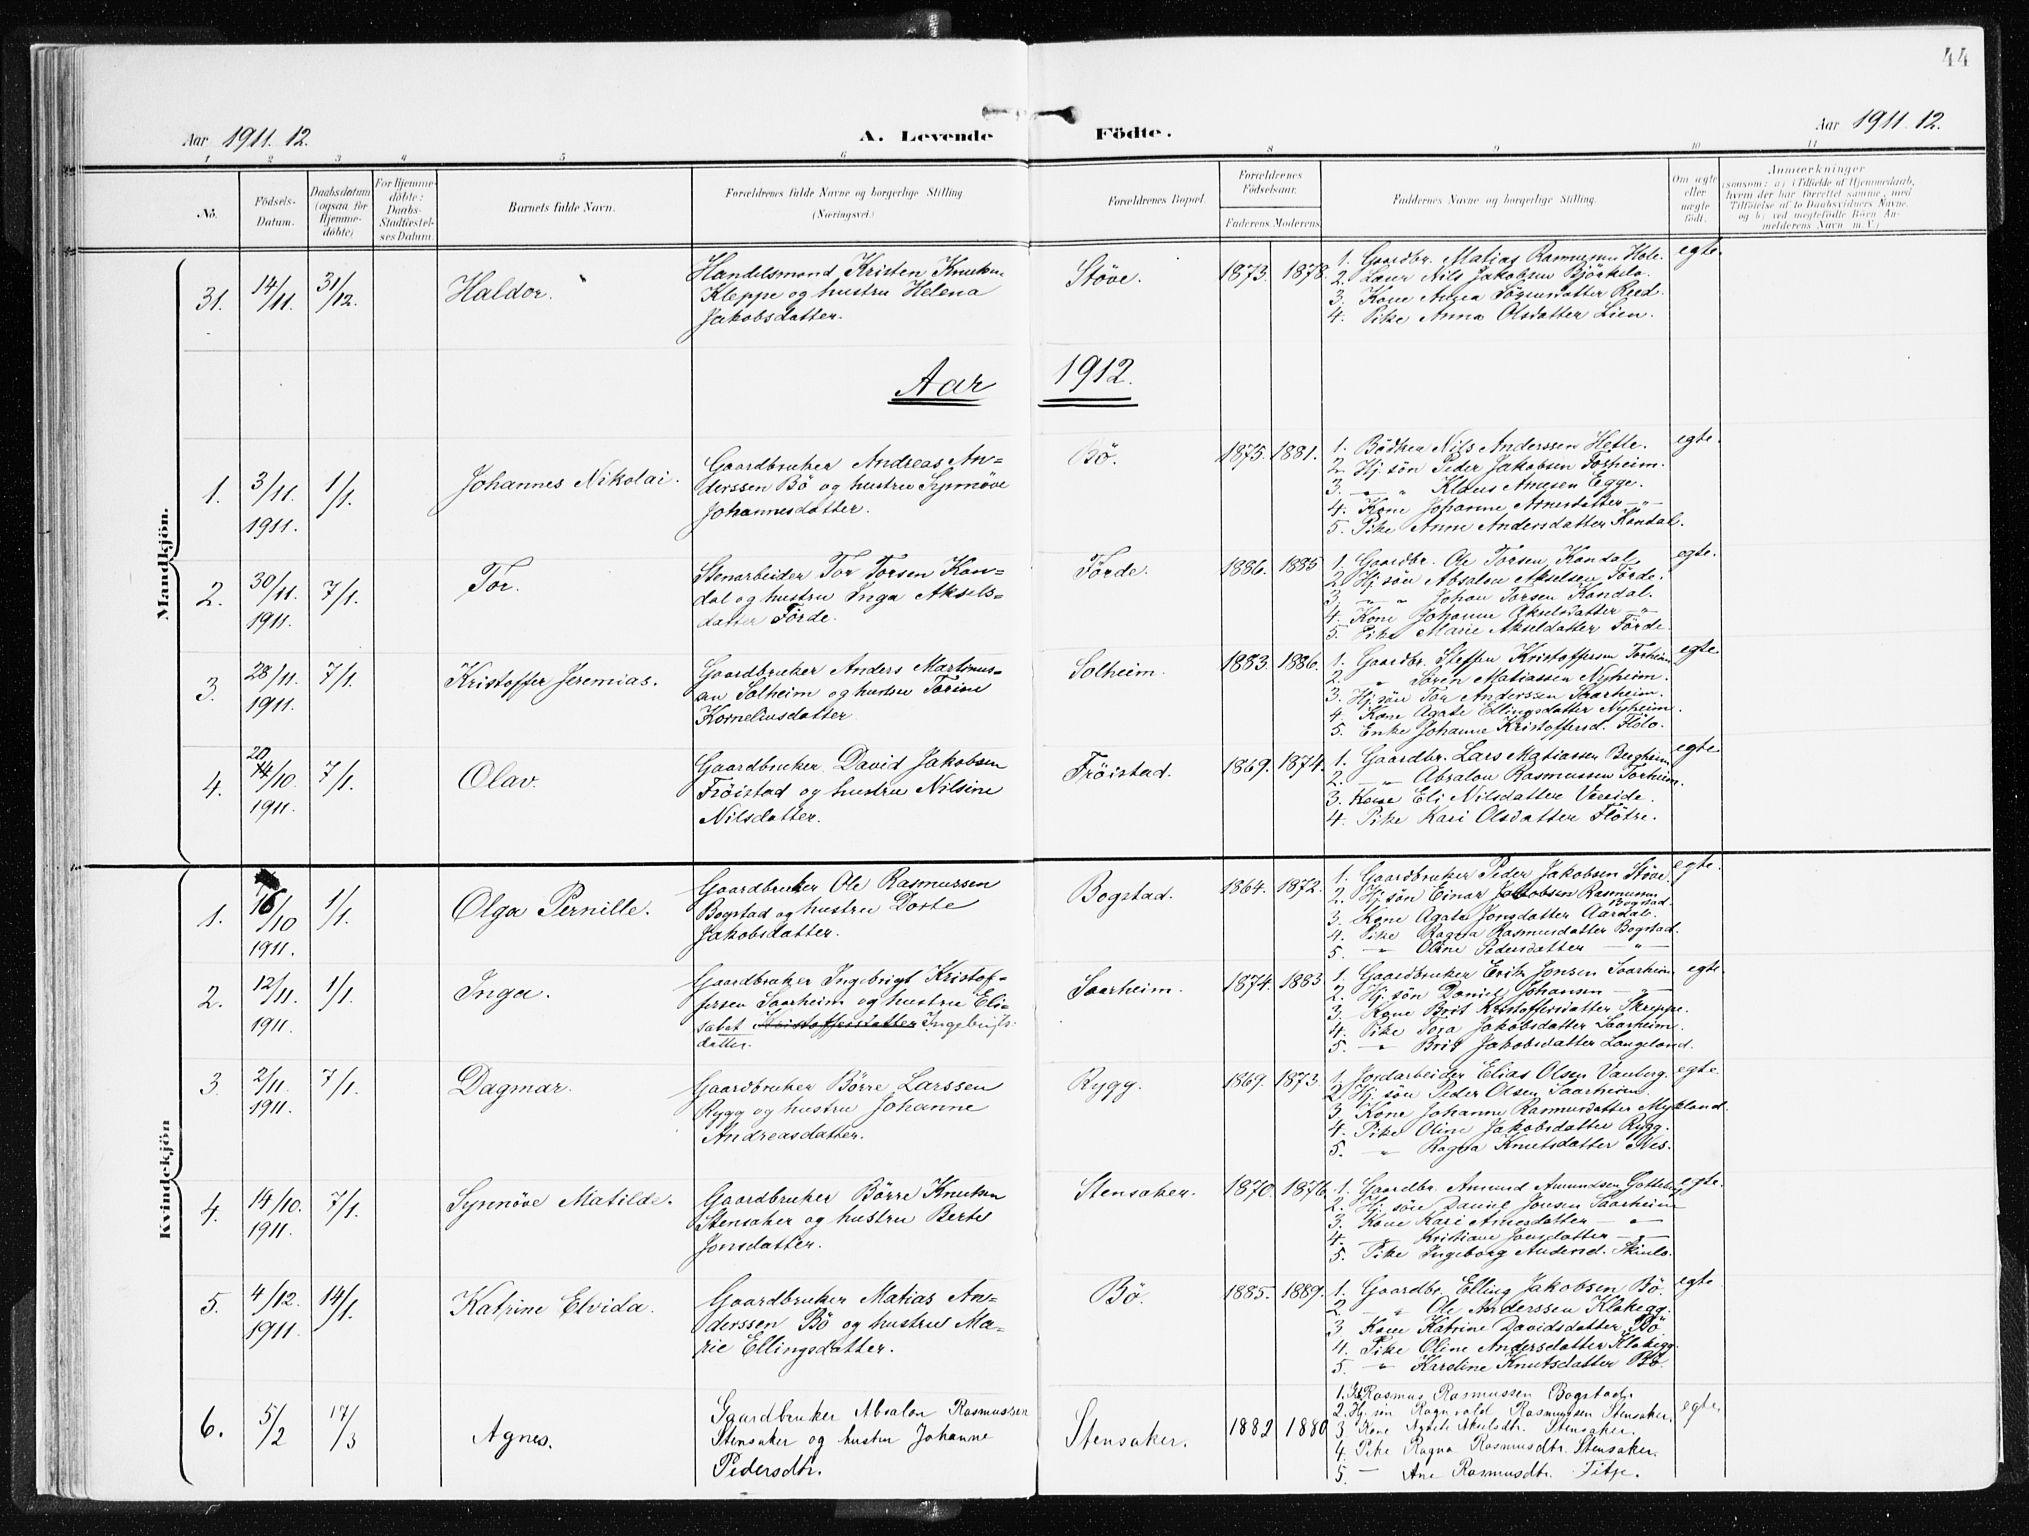 44
Aar 1911. 12.
A. Levende Födte.
Aar 1911. 12.
1 2 3 4 5 6 8 9 10 11
No.
Födsels-Datum.
Daabsdatum (ogsaa for Hjemme-döbte)
For Hjemme-döbte: Daabs-Stadfæstel-ses Datum.
Barnets fulde Navn.
Forældrenes fulde Navne og borgerlige Stilling
(Næringsvei.)
Forældrenes Bopæl.
Forældrenes Födselsaar.
Faderens. Moderens.
Faddernes Navne og borgerlige Stilling.
Om ægte eller uægte födt.
Anmærkninger
(saasom: a) i Tilfælde af Hjemmedaab,
hvem der har forrettet samme, med
Tilföielse af to Daabsvidners Navne,
og b) ved uægtefödte Börn An-
melderens Navn m. V.)
Mandkjön.
31. 14/11. 31/12. Haldor.
Handelsmand Kristen Knutsen
Kleppe og hustru Helena
Jakobsdatter.
Støve. 1873. 1878.
1. Gaardbr. Matias Rasmussen Hole.
2. Lærer Nils Jakobsen Björkelo.
3. Kone Anna Sörensdatter Reed.
4. Pike Anna Olsdatter Lien.
egte.
Aar 1912.
1. 3/11. 1911. 1/1. Johannes Nikolai.
Gaardbruker Andreas An-
derssen Bö og hustru Synnöve
Johannesdatter.
Bö. 1875. 1881.
1. Bödker Nils Anderssen Hetle.
2. Hj. sön Peder Jakobsen Torheim.
3. " " Klaus Arnesen Egge.
4. Kone Johanne Arnesdatter "
5. Pike Anne Andersdatter Kandal.
egte.
2. 30/11. 1911. 7/1. Tor.
Stenarbeider Tor Torsen Kan-
dal og hustru Inga Aksels-
datter Förde.
Förde. 1886. 1885
1. Gaardbr. Ole Torsen Kandal.
2. Hj. sön Absalon Akselsen Förde.
3. " " Johan Torsen Kandal.
4. Kone Johanne Akselsdatter "
5. Pike Marie Akseldatter Förde.
egte.
3. 28/11. 1911. 7/1. Kristoffer Jeremias.
Gaardbruker Anders Martinus-
sen Solheim og hustru Torine
Korneliusdatter.
Solheim. 1883. 1886.
1. Gaardbr. Steffen Kristoffersen Torheim
2. " Sören Matiassen Nyheim.
3. Hj. sön Tor Anderssen Saarheim.
4. Kone Agate Ellingsdatter Nyheim.
5. Enke Johanne Kristoffersd. Flölo.
egte
4. 20 14/10. 1911. 7/1. Olav.
Gaardbruker David Jakobsen
Fröistad og hustru Nilsine
Nilsdatter.
Fröistad. 1869. 1874.
1. Gaardbr. Lars Matiassen Bergheim
2. " Absalon Rasmussen Torheim.
3. Kone Eli Nilsdatter Vereide.
4. Pike Kari Olsdatter Flötre.
egte
Kvindekjön
1. 16/10 1911. 1/1. Olga Pernille.
Gaardbruker Ole Rasmussen
Bogstad og hustru Dorte
Jakobsdatter.
Bogstad. 1864. 1872.
1. Gaardbruker Peder Jakobsen Støve.
2. Hj. sön Einar Jakobsen Rasmussen Bogstad.
3. Kone Agata Jonsdatter Aardal.
4. Pike Ragna Rasmusdatter Bogstad.
5. " Oline Pedersdatter "
egte.
2. 12/11. 1911. 1/1. Inga.
Gaardbruker Ingebrigt Kristof-
fersen Saarheim og hustru Eli-
sabet Kristoffersdatter Ingebrigts-
datter.
Saarheim. 1874. 1883
1. Gaardbruker Erik Jonsen Saarheim
2. Hj. sön Daniel Johansen "
3. Kone Brit Kristoffersdatter Skreppe.
4. Pike Tora Jakobsdatter Saarheim.
5. " Brit Jakobsdatter Langeland.
egte.
3. 2/11. 1911. 7/1. Dagmar.
Gaardbruker Börre Larssen
Rygg og hustru Johanne
Andreasdatter.
Rygg. 1869. 1873.
1. Jordarbeider Elias Olsen Vanberg.
2. Hj. sön Peder Olsen Saarheim.
3. Kone Johanne Rasmusdatter Mykland.
4. Pike Oline Jakobsdatter Rygg.
5. " Ragna Knutsdatter Nes.
egte.
4. 14/10. 1911. 7/1. Synnöve Matilde.
Gaardbruker Börre Knutsen
Stensaker og hustru Berte
Jonsdatter.
Stensaker. 1870. 1876.
1. Gaardbr. Amund Amundsen
2. Hj. sön Daniel Jonsen Saarheim
3. Kone Kari Arnesdatter "
4. " Kristiane Jonsdatter "
5. Pike Ingeborg
egte.
5. 4/12. 1911. 14/1. Katrine Elvida.
Gaardbruker Matias An-
derssen Bö og hustru Ma-
rie Ellingsdatter.
Bö. 1885. 1889.
1. Gaardbr. Elling Jakobsen Bö.
2. " " Ole Anderssen Klakegg.
3. Kone Katrine Davidsdatter Bö
4. Pike Oline Andersdatter Klakegg.
5. " Karoline Knutsdatter Bö.
egte
6. 5/2 17/3 Agnes.
Gaardbruker Absalon Rasmussen
Stensaker og hustru Johanne
Pedersdtr.
Stensaker. 1882 1880
1. Rasmus Rasmussen Bogstad.
2. Hj. sön Ragnvald Rasmussen Stensaker.
3. Kone Agnete Akselsdtr. Stensaker.
4. Pike Ragna Rasmusdtr. Stensaker.
5. — Ane Rasmusdtr. Fitje.
egte.